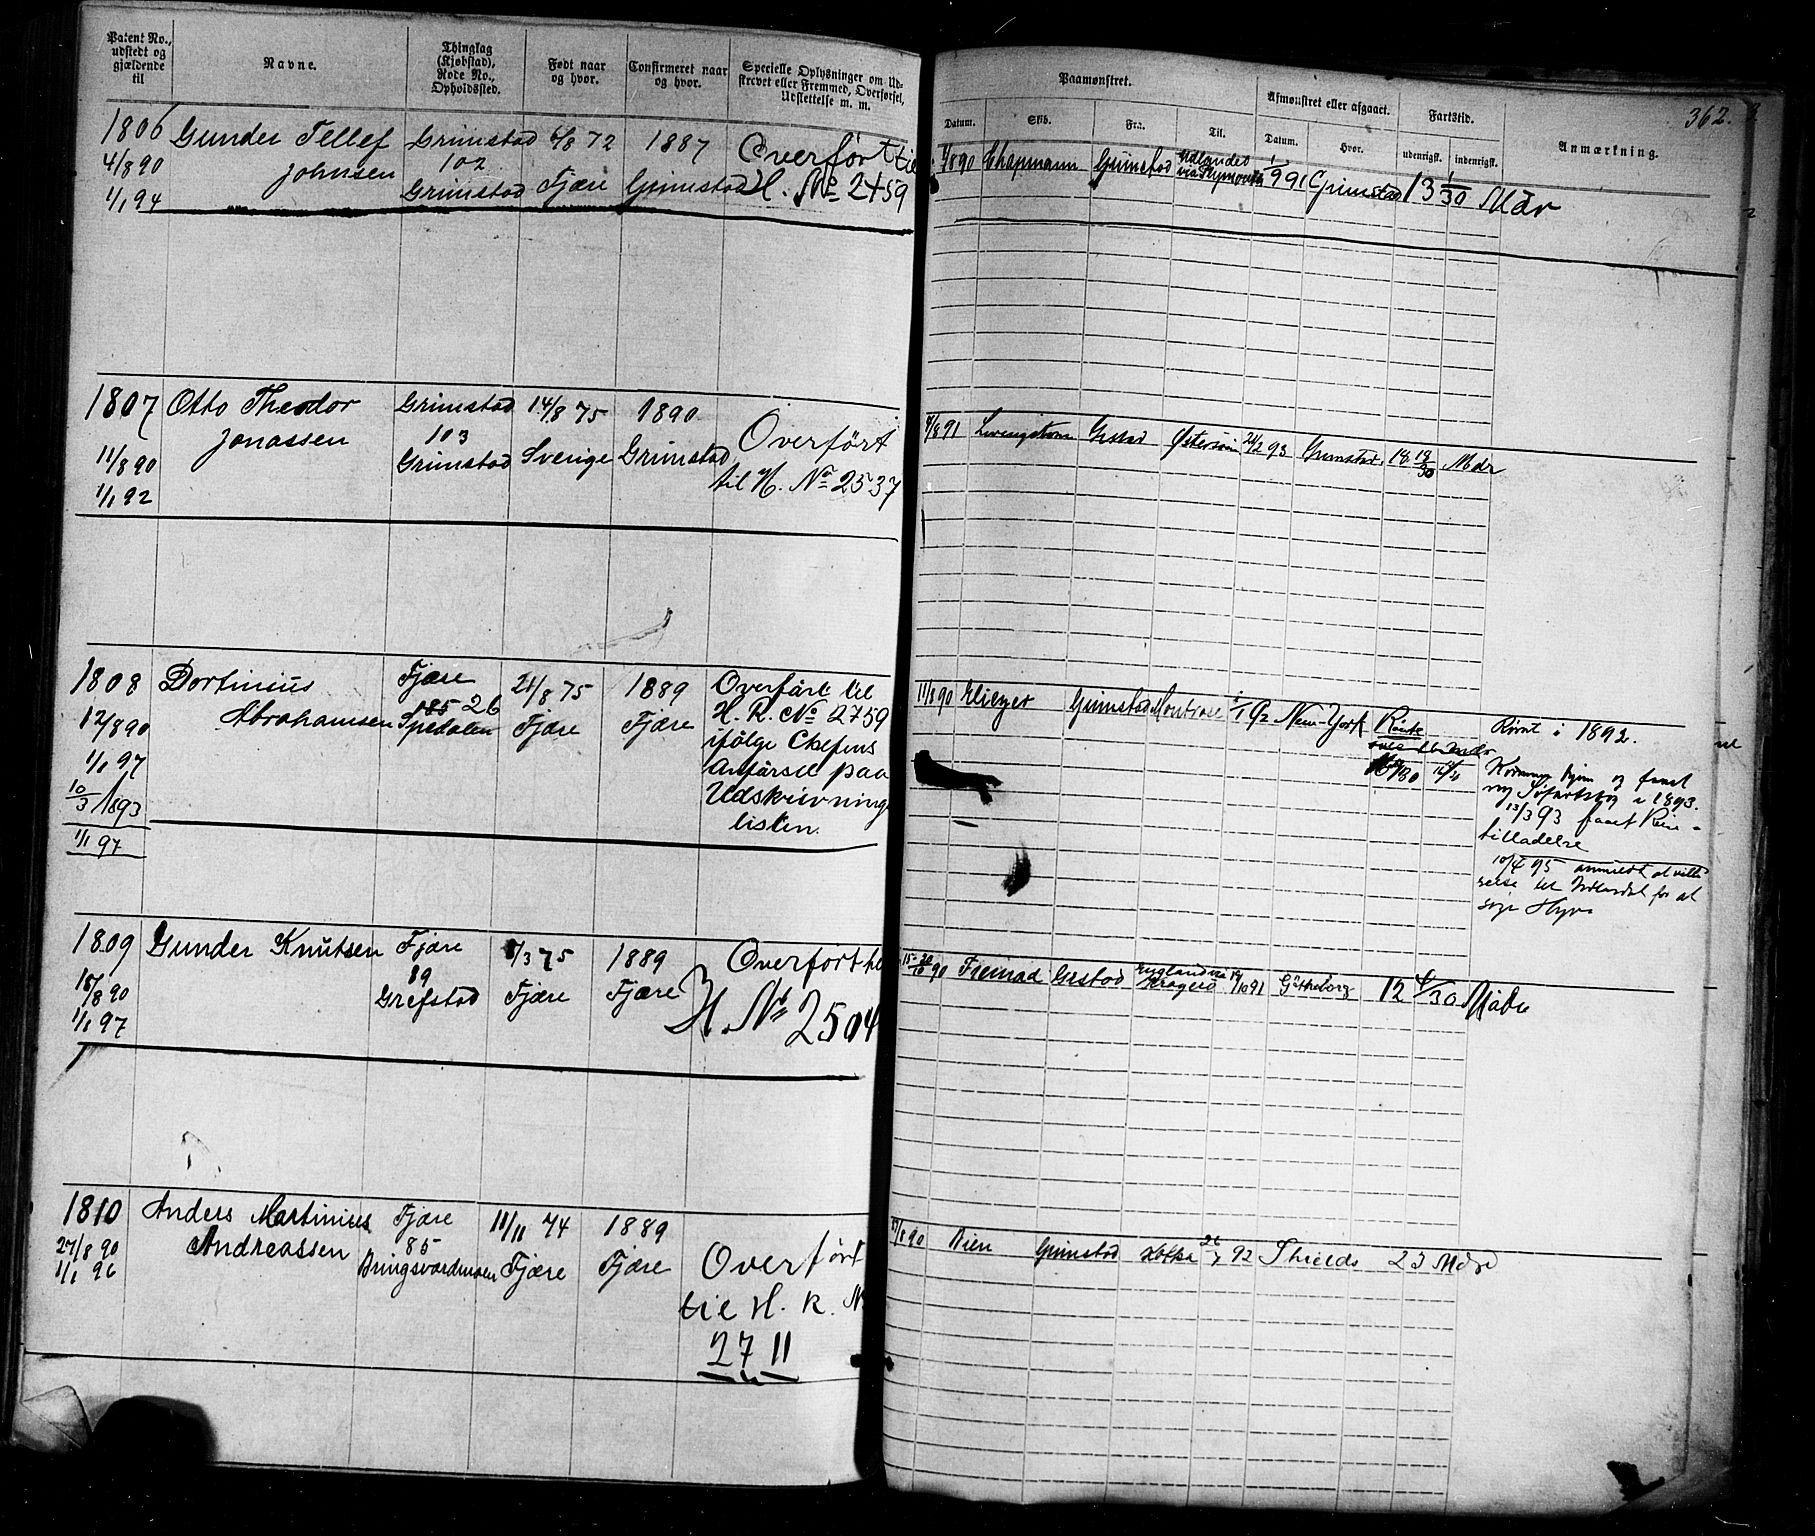 Patent No., udstedt og gjældende til
Navne.
Thinglag (Kjøbstad), Rode No., Opholdssted.
Født naar og hvor.
Confirmeret naar og hvor.
Specielle Oplysninger om Udskrevet eller Fremmed, Overførsel, Udslettelse m. m.
Paamønstret.
Afmønstret eller afgaaet.
Fartstid.
362.
Datum.
Skib.
Fra.
Til.
Datum.
Hvor.
udenrigsk.
indenrigsk.
Anmærkning.
1806 Gunder Tellef Grimstad 6/8 72 1887 Overført til
4/8 90 Johnsen 102
1/1 94 Grimstad Fjære Grimstad H. No 2459
/8 90 Chapmann Grimstad Udlandet via Plymouth 1/9 91 Grimstad 13 1/30 Mdr
1807 Otto Theodor Grimstad 14/8 75 1890
Jonassen 103 Overført
11/8 90 Grimstad Sverige Grimstad til H. No 2537
1/1 92
/8 91 Livingstone Grstad Østersøen 24/2 93 Grimstad 18 18/30 Mdr
1808 Dortinius Fjære 21/8 75 1889 Overført til
Abrahamsen 85 26 H. R. No 2759
12/8 90 Spedalen Fjære Fjære ifølge Chefens
1/1 97 Anførsel paa
10/3 1893 Udskrivnings
1/1 97 listen.
11/8 90 Eliezer Grimstad Montrose 1/1 92 New-York Rømt
Rømt i 1892.
Kommen hjem og faaet
ny Søfartsbog i 1893.
13/3 93 faaet Reise-
tilladelse
10/4 95 anmeldt at ville
reise til Udlandet for at
søge Hyre
1809 Gunder Knutsen Fjære /3 75 1889 Overført til
89
/8 90 Grefstad Fjære Fjære H. No 2504
1/1 97
90 Fremad Grstad England via Kragerø 19/10 91 Götheborg 12 /30 Mdr
1810 Anders Martinius Fjære 11/11 74 1889
27/8 90 Andreassen 85 Overført
1/1 96 Bringsværdmoen Fjære Fjære
til H. R. N
2711
/8 90 Bien Grimstad 26/7 92 Shields 23 Mdr